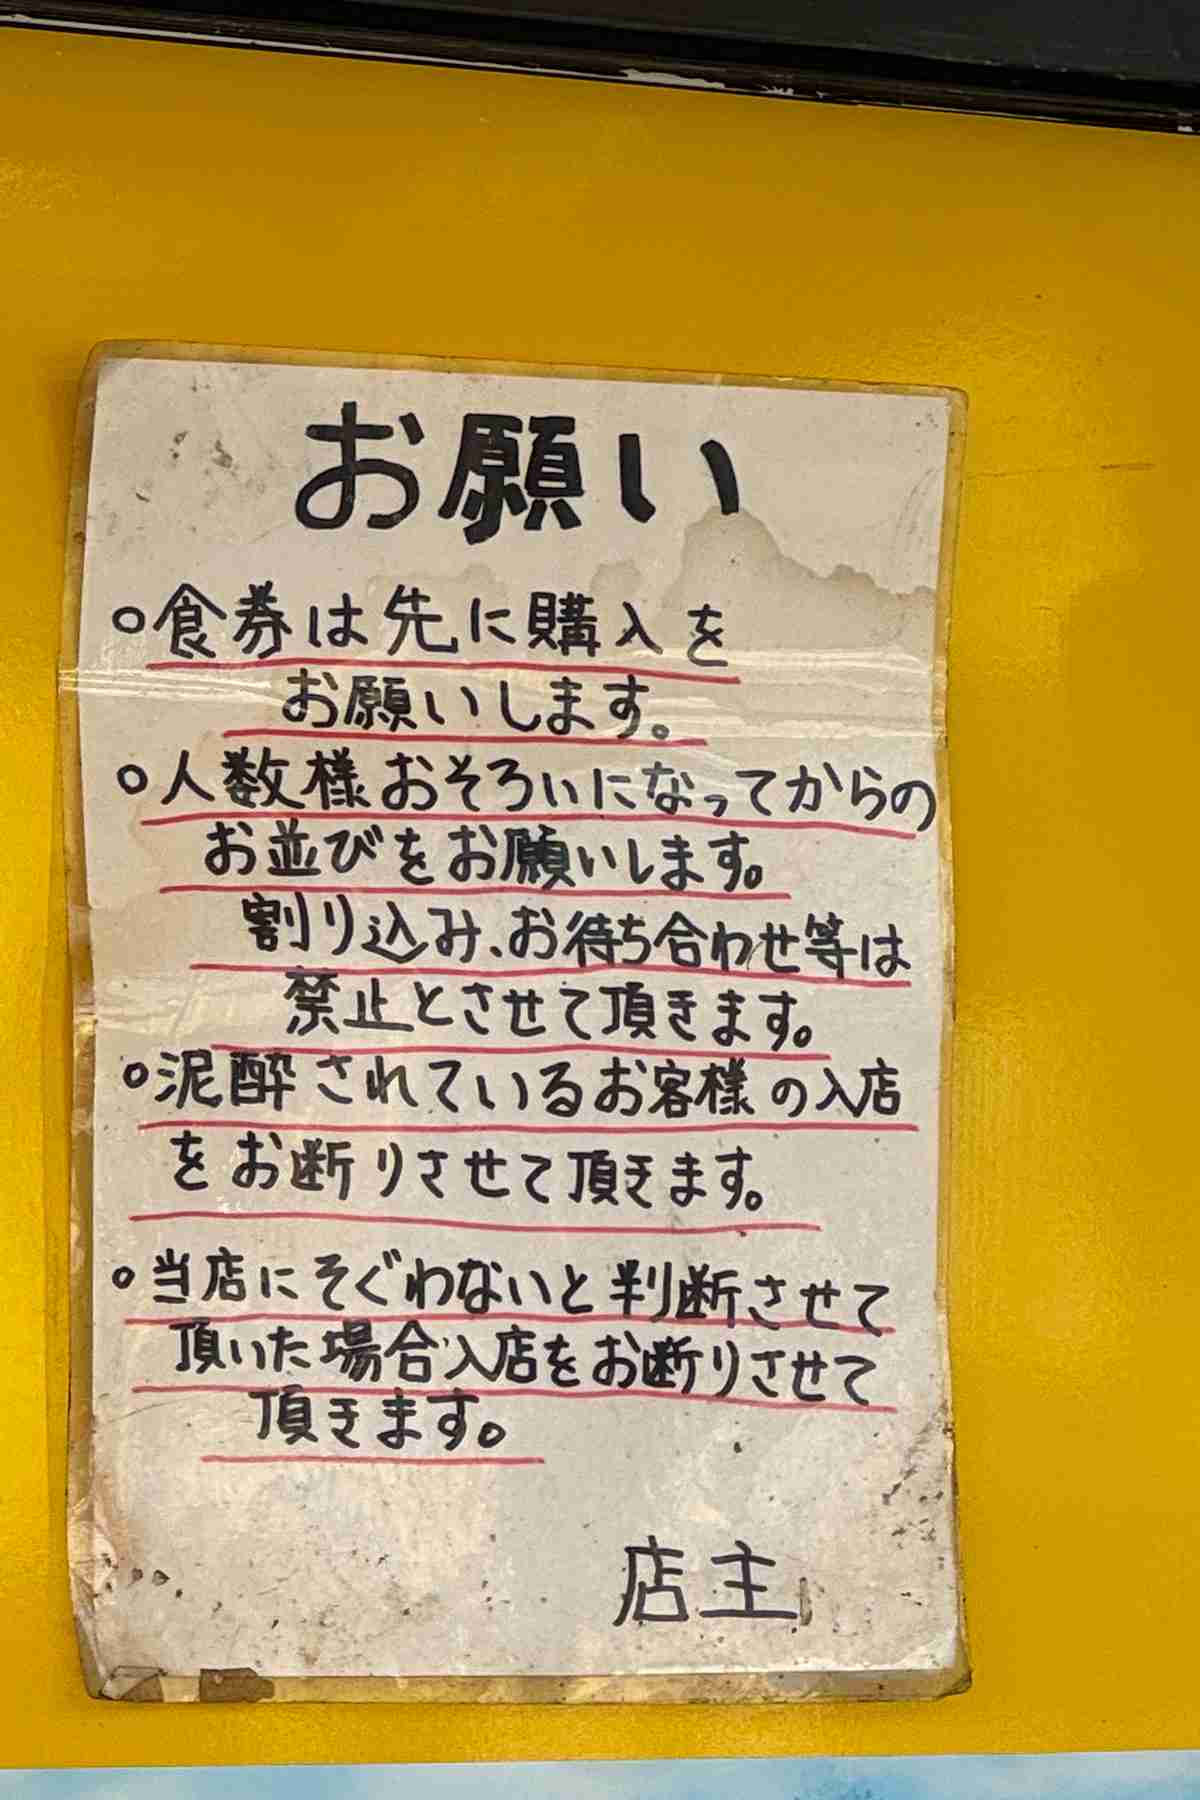 お願い
○食券は先に購入を
お願いします。
○人数様おそろいになってからの
お並びをお願いします。
割り込み、お待ち合わせ等は
禁止とさせて頂きます。
○泥酔されているお客様の入店
をお断りさせて頂きます。
○当店にそぐわないと判断させて
頂いた場合入店をお断りさせて
頂きます。
店主